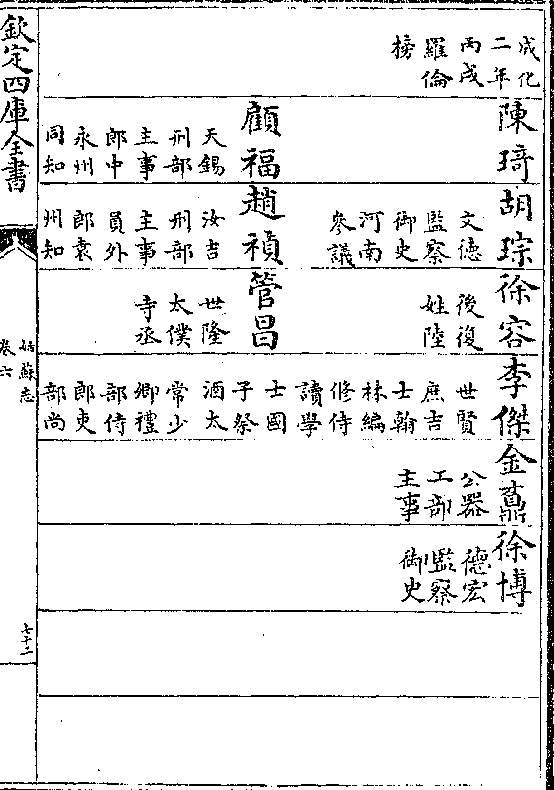 成化
二年
丙戌
羅倫
榜
陳琦
顧福
天錫
刑部
主事
郎中
永州
同知
胡琮
文德
監察
御史
河南
參議
趙禎
汝吉
刑部
主事
員外
郎袁
州知
徐容
後復
姓陸
管昌
世隆
太僕
寺丞
李傑
世賢
庶吉
士翰
林編
修侍
讀學
士國
子祭
酒太
常少
卿禮
部侍
郎吏
部尚
金
公器
工部
主事
徐博
德宏
監察
御史
欽定四庫全書
姑蘇志
卷六
七十二